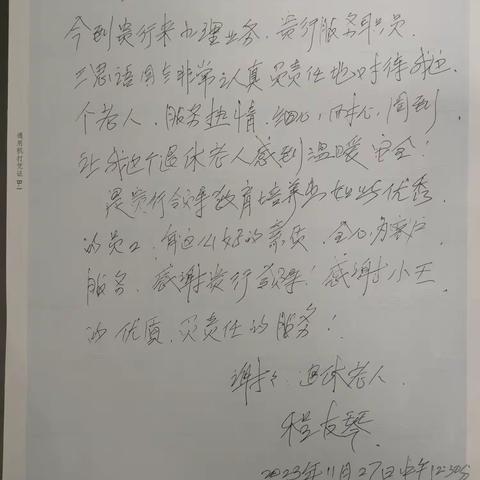 今到贵行来办理业务，贵行服务职员
王思语同志非常认真负责任地对待我这
个老人，服务热情，细心，耐心，周到，
让我这个退休老人感到温暖安全！
是贵行领导教育培养出如此优秀
的员工，有这么好的素质，全心为客户
服务，感谢贵行领导！感谢小王
的优质、负责任的服务！
谢谢：退休老人
程友琴
2023年11月27日中午12:30分
通用机打凭证 B-1